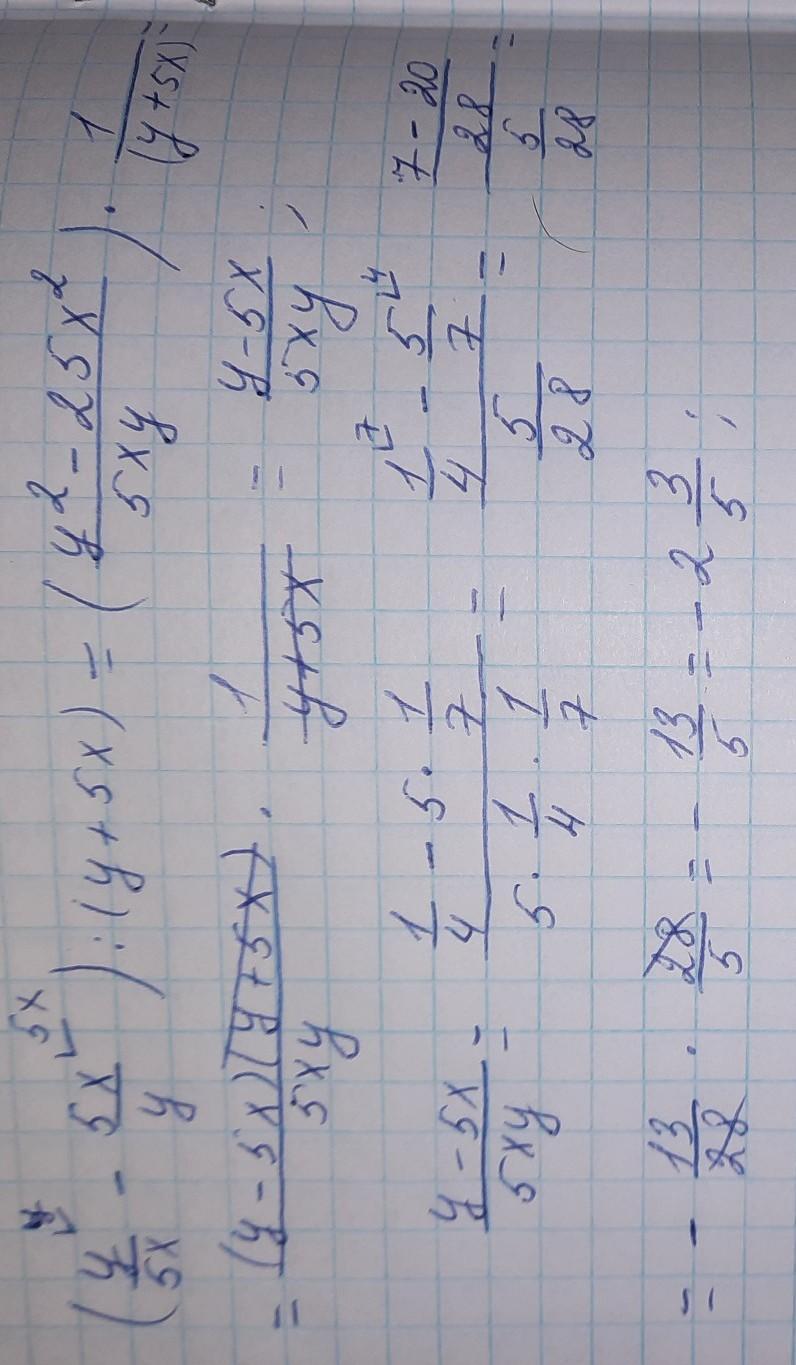 (y/5x - 5x/y) : (y + 5x) = (y² - 25x²/5xy) · 1/(y + 5x) =
= (y - 5x)(y + 5x)/5xy · 1/y + 5x = y - 5x/5xy ;
y - 5x/5xy = 1/4 - 5 · 1/7 / 5 · 1/4 · 1/7 = 1/4 - 5/7 / 5/28 = 7 - 20/28 / 5/28 =
= - 13/28 · 28/5 = - 13/5 = - 2 3/5 ;